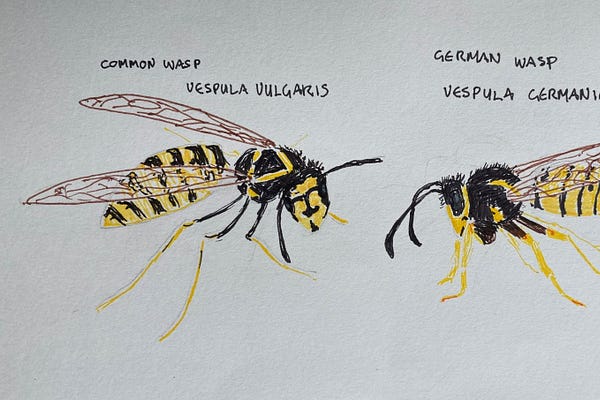 COMMON WASP
VESPULA VULGARIS
GERMAN WASP
VESPULA GERMANI